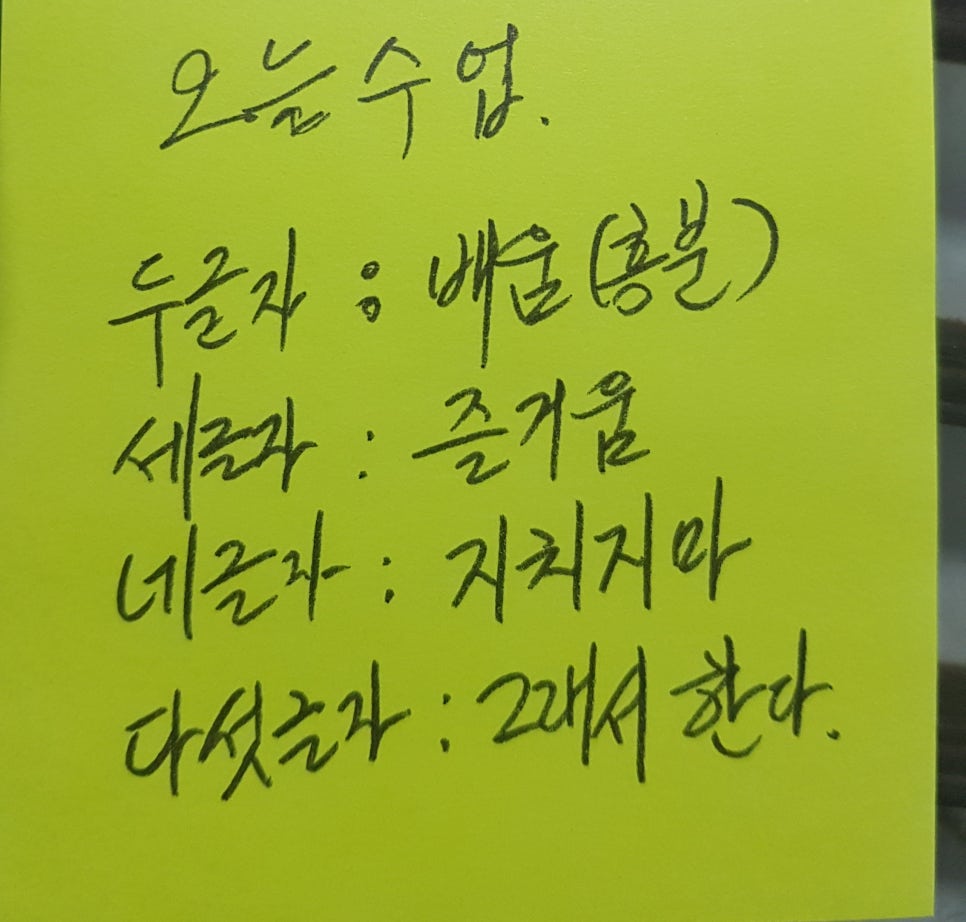 오늘 수업.
두글자 : 배움 (흥분)
세글자 : 즐거움
네글자 : 지치지마
다섯글자 : 그래서 한다.